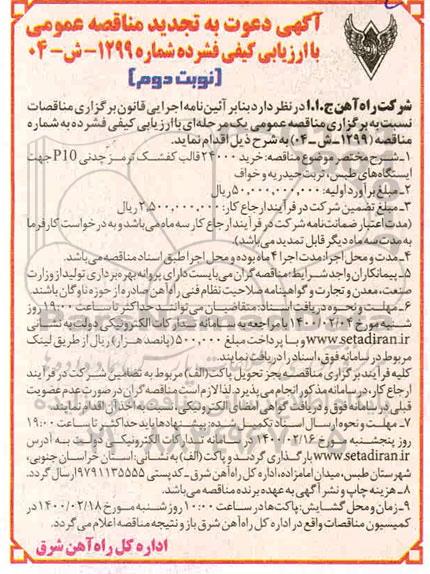 آگهی دعوت به تجدید مناقصه عمومی
با ارزیابی کیفی فشرده شماره ۱۲۹۹-ش-۰۴
(نوبت دوم)
شرکت راه آهن ج.ا.ا در نظر دارد بنابر آئین نامه اجرایی قانون برگزاری مناقصات
نسبت به برگزاری مناقصه عمومی یک مرحله ای با ارزیابی کیفی فشرده به شماره
مناقصه (۱۲۹۹-ش-۰۴) به شرح ذیل اقدام نماید.
۱-شرح مختصر موضوع مناقصه: خرید ۲۴۰۰۰ قالب کفشک ترمز چدنی P10 جهت
ایستگاه‌های طبس، تربت حیدریه و خواف
۲-مبلغ برآورد اولیه: ۵۰,۰۰۰,۰۰۰,۰۰۰ریال
۳-مبلغ تضمین شرکت در فرآیند ارجاع کار: ۲,۵۰۰,۰۰۰,۰۰۰ ریال
(مدت اعتبار ضمانت‌نامه شرکت در فرآیند ارجاع کار سه ماه می‌باشد و به درخواست کارفرما
به مدت سه ماه دیگر قابل تمدید می‌باشد)
۴-مدت و محل اجرا: مدت اجرا ۴ ماه بوده و محل اجرا طبق اسناد مناقصه می‌باشد.
۵-پیمانکاران واجد شرایط: مناقصه گران می‌بایست دارای پروانه بهره برداری تولید از وزارت
صنعت، معدن و تجارت و گواهینامه صلاحیت نظام فنی راه آهن صادره از حوزه ناوگان باشند
۶-مهلت و نحوه دریافت اسناد: متقاضیان می‌توانند حداکثر تا ساعت ۱۹:۰۰ روز
شنبه مورخ ۱۴۰۰/۰۲/۰۴ با مراجعه به سامانه تدارکات الکترونیکی دولت به نشانی
www.setadiran.ir و با پرداخت مبلغ ۵۰۰,۰۰۰ (پانصد هزار) ریال از طریق لینک
مربوط در سامانه فوق، اسناد را دریافت نمایند.
کلیه فرآیند برگزاری مناقصه بجز تحویل پاکت (الف) مربوط به تضامین شرکت در فرآیند
ارجاع کار، در سامانه مذکور انجام می‌پذیرد. لذا لازم است مناقصه گران در صورت عدم عضویت
قبلی در سامانه فوق و دریافت گواهی امضای الکترونیکی، نسبت به اخذ آن اقدام نمایند
۷-مهلت و نحوه ارسال اسناد تکمیل شده: پیشنهادها باید حداکثر تا ساعت ۱۹:۰۰
روز پنجشنبه مورخ ۱۴۰۰/۰۲/۱۶ در سامانه تدارکات الکترونیکی دولت به آدرس
www.setadiran.ir بارگذاری گردند و پاکت (الف) به نشانی: استان خراسان جنوبی،
شهرستان طبس، میدان امامزاده، اداره کل راه آهن شرق - کدپستی ۹۷۹۱۱۳۵۵۵۵ ارسال گردد.
۸-هزینه چاپ و نشر آگهی به عهده برنده مناقصه می‌باشد.
۹-زمان و محل گشایش: پاکت‌ها در ساعت ۱۰:۰۰ روز شنبه مورخ ۱۴۰۰/۰۲/۱۸ در
کمیسیون مناقصات واقع در اداره کل راه آهن شرق باز و نتیجه مناقصه اعلام می‌گردد.
اداره کل راه آهن شرق